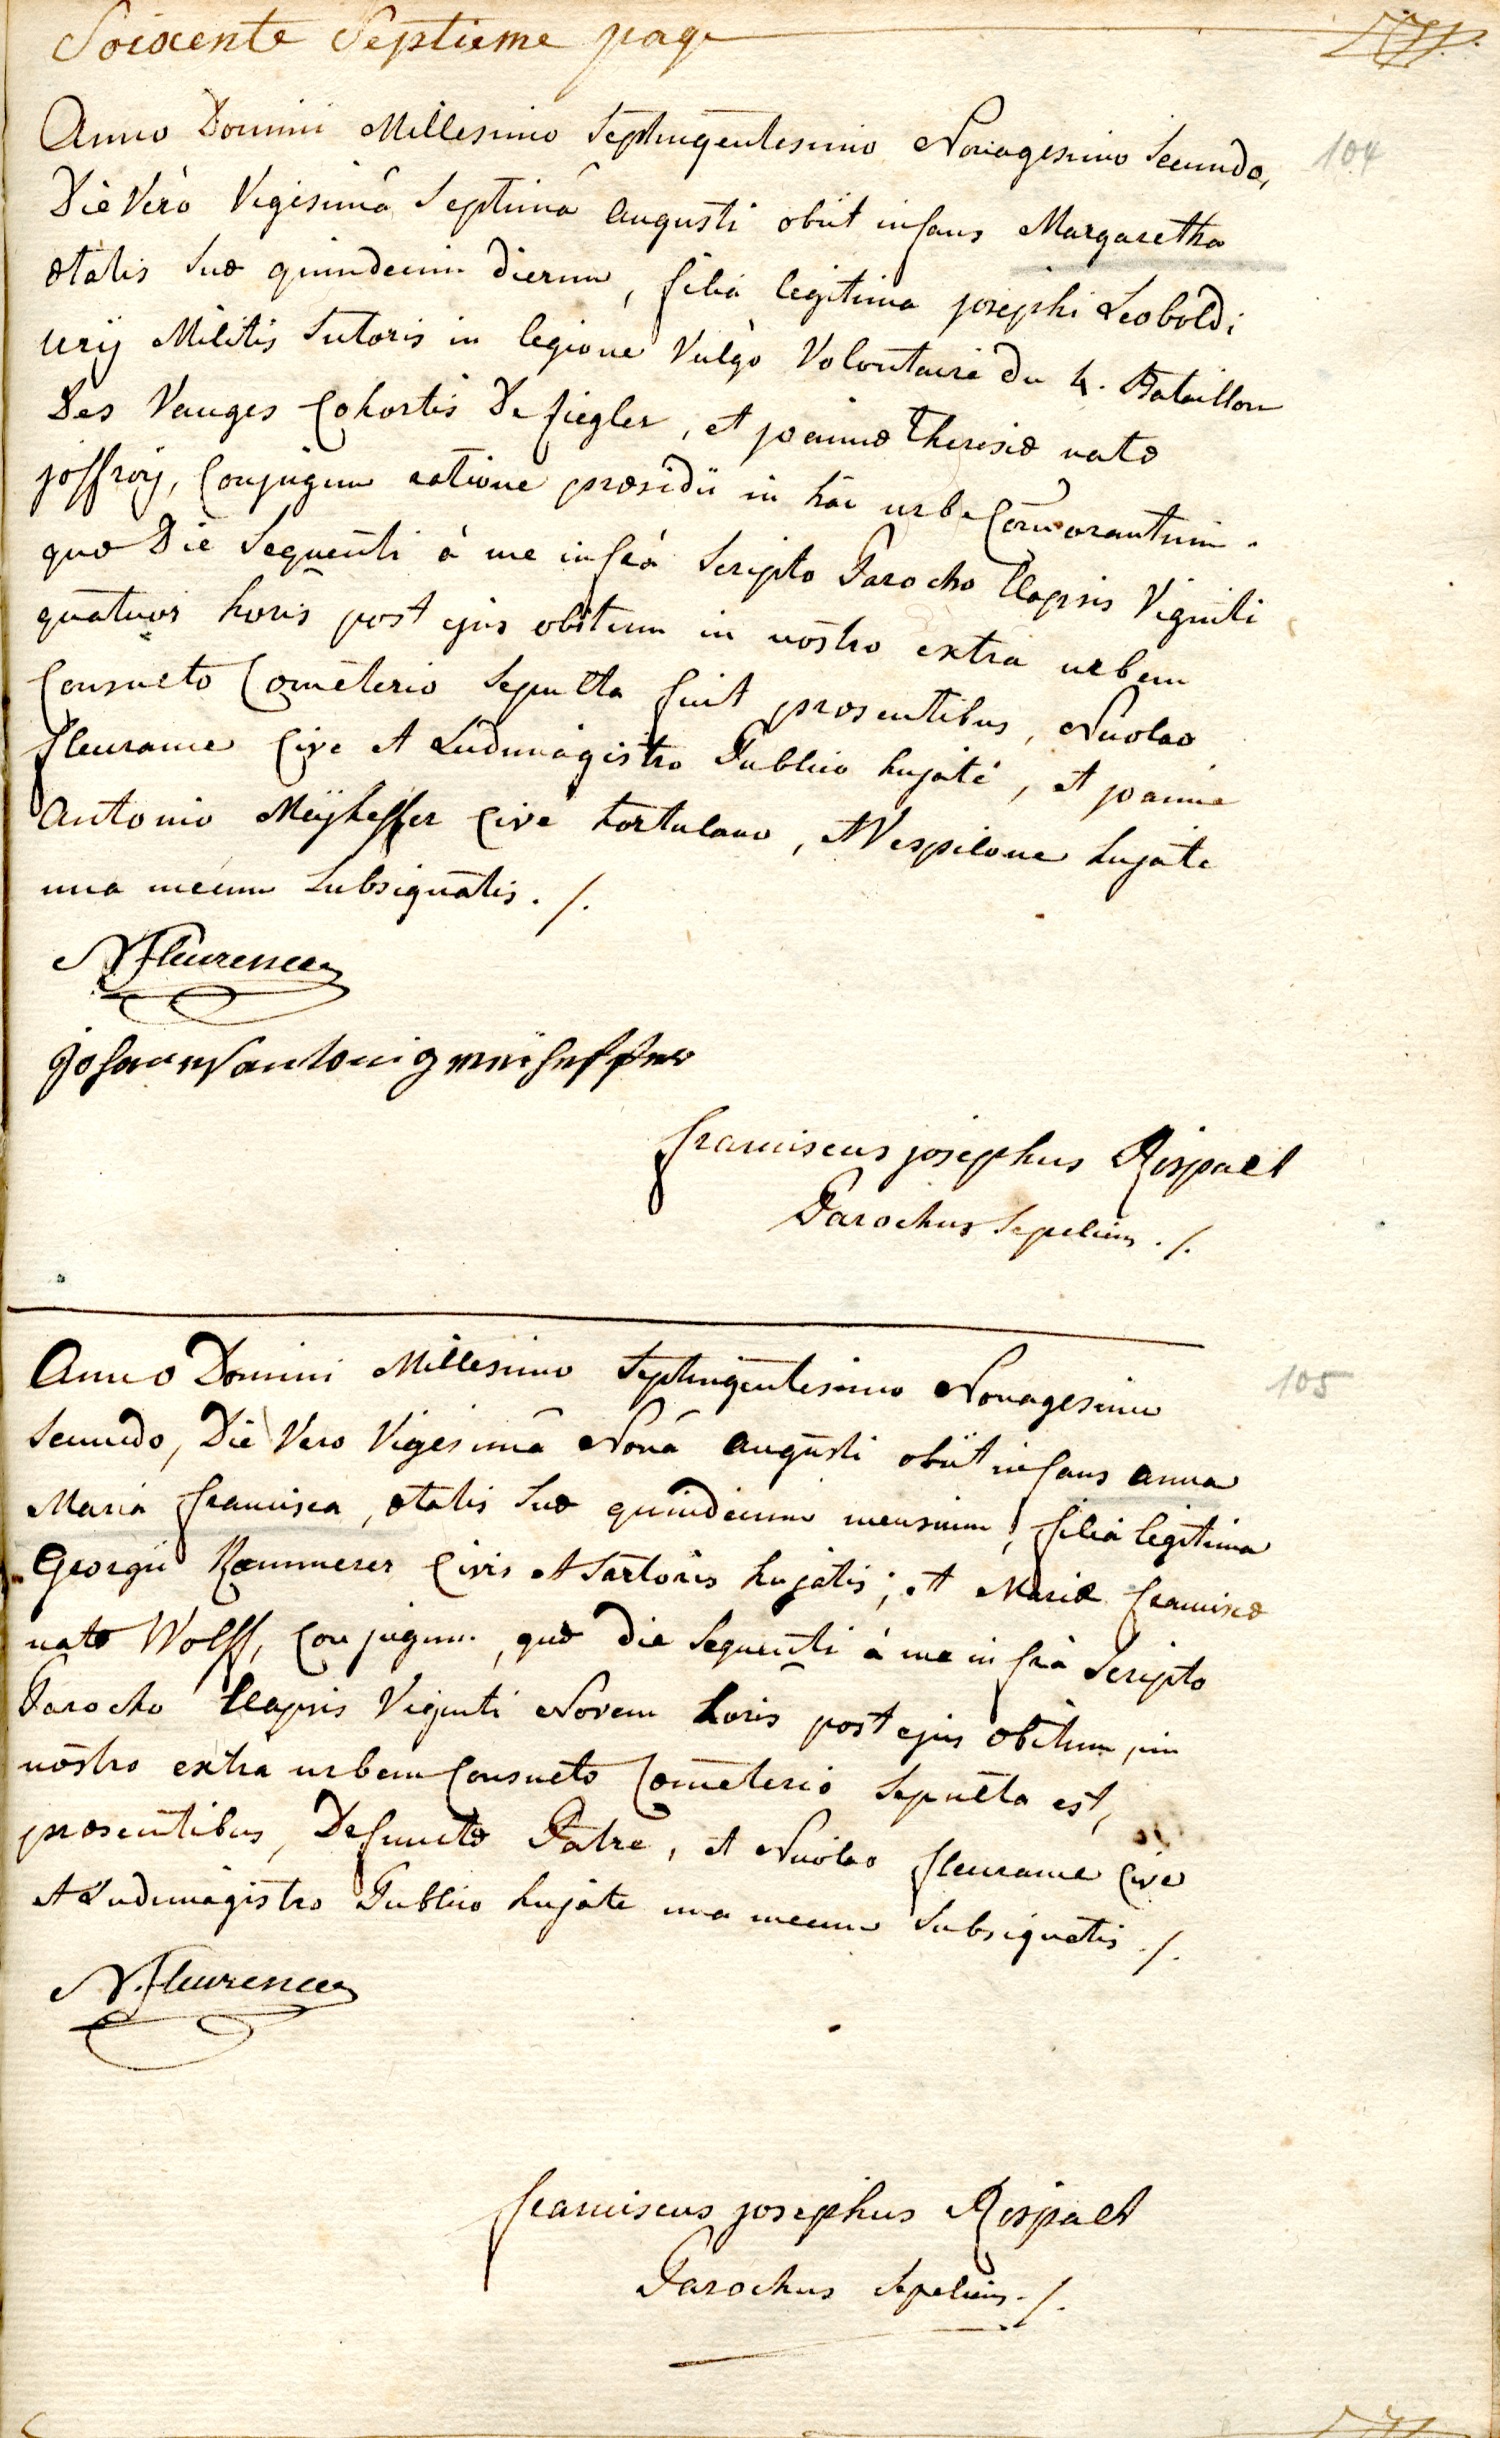 Soixente Septieme page
Anno Domini Millesimo Septingentesimo Nonagesimo Secundo,
104
Die Vero Vigesimâ Septimâ augusti obiit infans Margaretha
ætatis suæ quindecim dierum, filia legitima josephi Leoboldi
ury Militis Sutoris in legione Vulgo Volontaire du 4. Bataillon
Des Vauges Cohortis De Ziegler, et joannæ theresiæ natæ
joffroÿ, Conjugum ratione præsidii in hâc urbe Com̄orantium.
quæ Die Sequenti à me infrà Scripto Parocho Elapsis Viginti
quatuor horis post ejus obitum in nostro extra urbem
Consueto Cœmeterio Sepulta fuit præsentibus, Nicolao
fleurance Cive et Ludimagistro Publico hujate, et joanne
Antonio Meÿheffer Cive hortulano, et Vespilone hujate
una mecum Subsignatis ./.
N. Fleurence
johannes antonig meiheffer
franciscus josephus Rispalt
Parochus Sepeliens ./.
Anno Domini Millesimo Septingentesimo Nonagesimo
105
Secundo, Die Vero Vigesimâ Nonâ augusti obiit infans anna
Maria francisca, ætatis suæ quindecim mensium, filia legitima
Georgii Kæmmerer Civis et Sartoris hujatis; et Mariæ franciscæ
natæ Wolff, Conjugum, quæ die Sequenti à me infrà Scripto
Parocho Elapsis Viginti Novem horis post ejus obitum, in
nostro extra urbem Consueto Cœmeterio Sepulta est,
præsentibus, Defunctæ Patre, et Nicolao fleurance Cive
et Ludimagistro Publico hujate una mecum Subsignatis ./.
N. Fleurence
franciscus josephus Rispalt
Parochus Sepeliens ./.